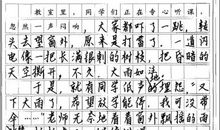 教室里，同学们正在专心听课，
忽然一声闷响，大家都吓了一跳，转
头去望窗外，原来是打雷了，一道闪
电像一把长满银刺的树枝，把昏暗的
天空撕开，不久，大雨如
于是，就有同学低声的埋怨："又
下大雨了，希望放学能停，我没带伞
……"老师无奈地看着窗